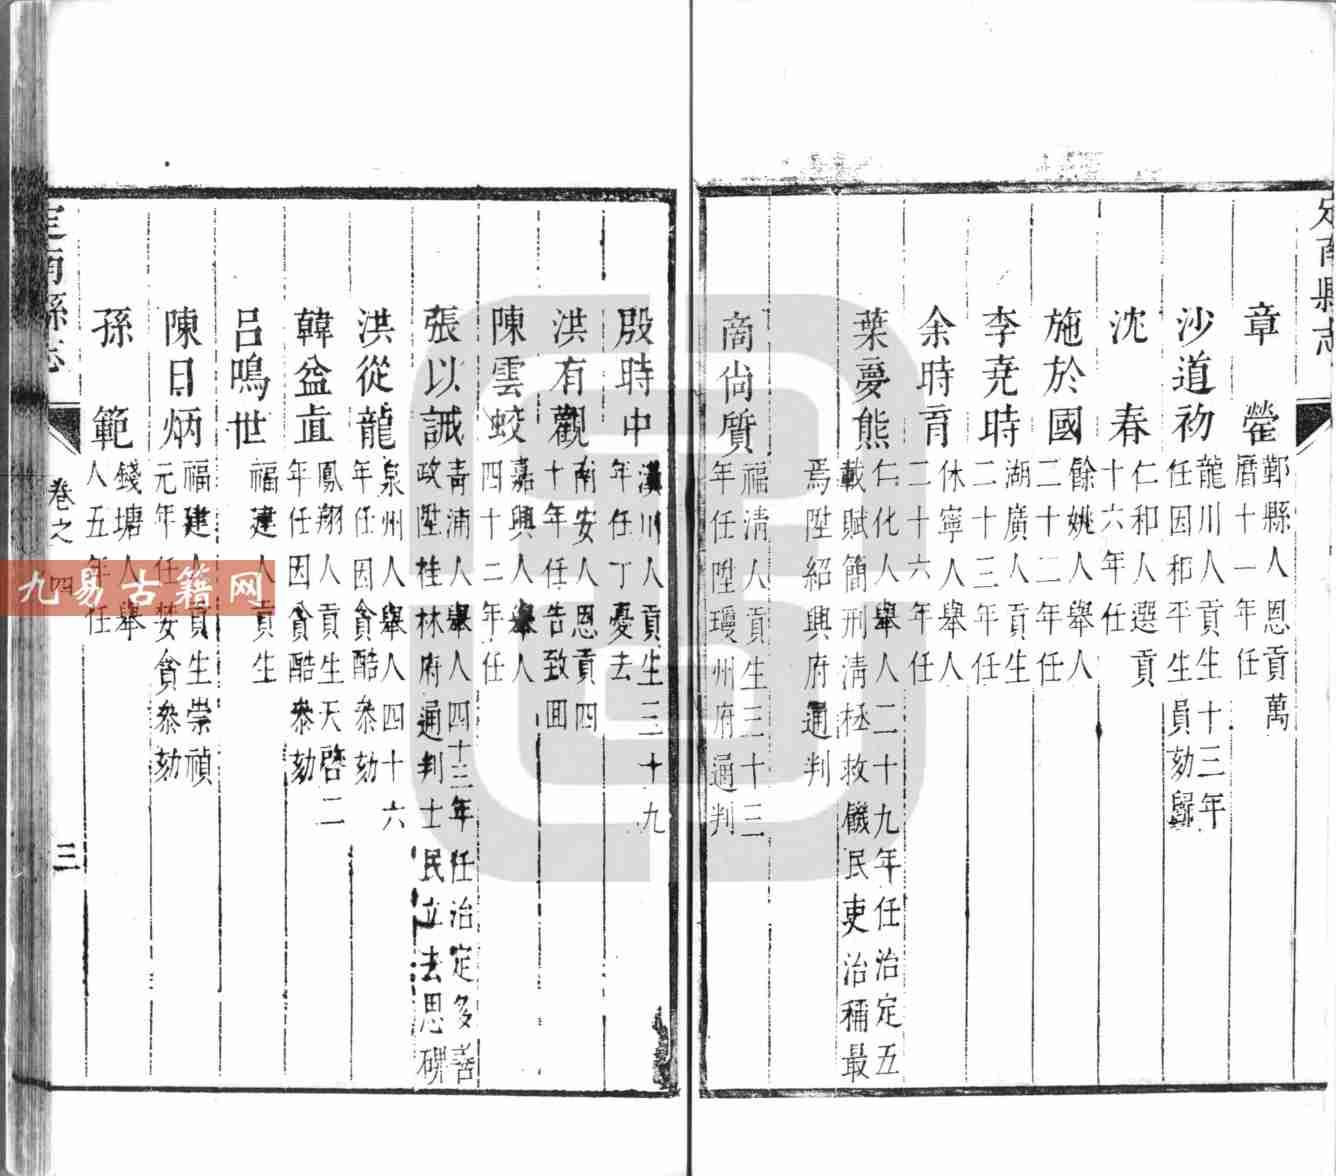 定南縣志
章犖
鄞縣人恩貢萬
曆十一年任
沙道初
龍川人貢生十三年
任因和平生員劾歸
沈春
仁和人選貢
十六年任
施於國
餘姚人舉人
二十二年任
李堯時
湖廣人貢生
二十三年任
余時育
休寧人舉人
二十六年任
葉夢熊
仁化人舉人二十九年任治定五
載賦簡刑清拯救饑民吏治稱最
焉陞紹興府通判
商尙質
福清人貢生三十三
年任陞瓊州府通判
殷時中
漢川人貢生三十九
年任丁憂去
洪有觀
南安人恩貢四
十年任告致回
陳雲蛟
嘉興人舉人
四十二年任
張以誠
青浦人舉人四十三年任治定多善
政陞桂林府通判士民立法思碑
洪從龍
泉州人舉人四十六
年任因貪酷叅劾
韓益直
鳳翔人貢生天啓二
年任因貪酷叅劾
呂鳴世
福建人貢生
陳日炳
福建人貢生崇禎
元年任婪貪叅劾
孫範
錢塘人舉
人五年任
定南縣志
卷之四
三
九易古籍网